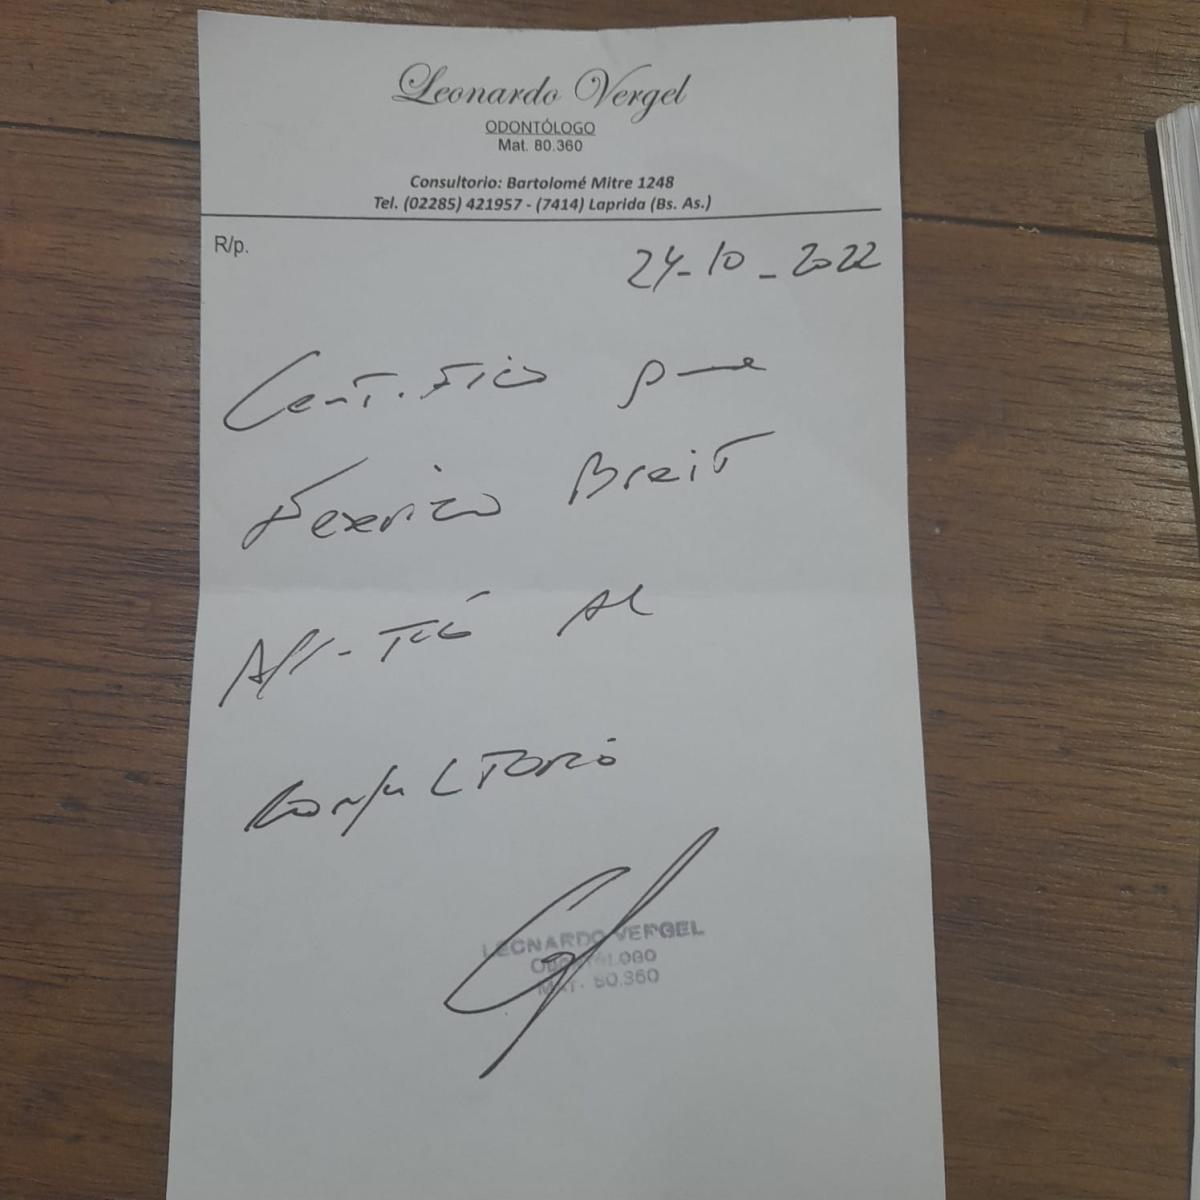 Leonardo Vergel
ODONTÓLOGO
Mat. 80.360
Consultorio: Bartolomé Mitre 1248
Tel. (02285) 421957 - (7414) Laprida (Bs. As.)
R/p.
24-10-2022
Certifico que
Federico Breit
Asistió al
consultorio
LEONARDO VERGEL
ODONTÓLOGO
MAT. 80.360